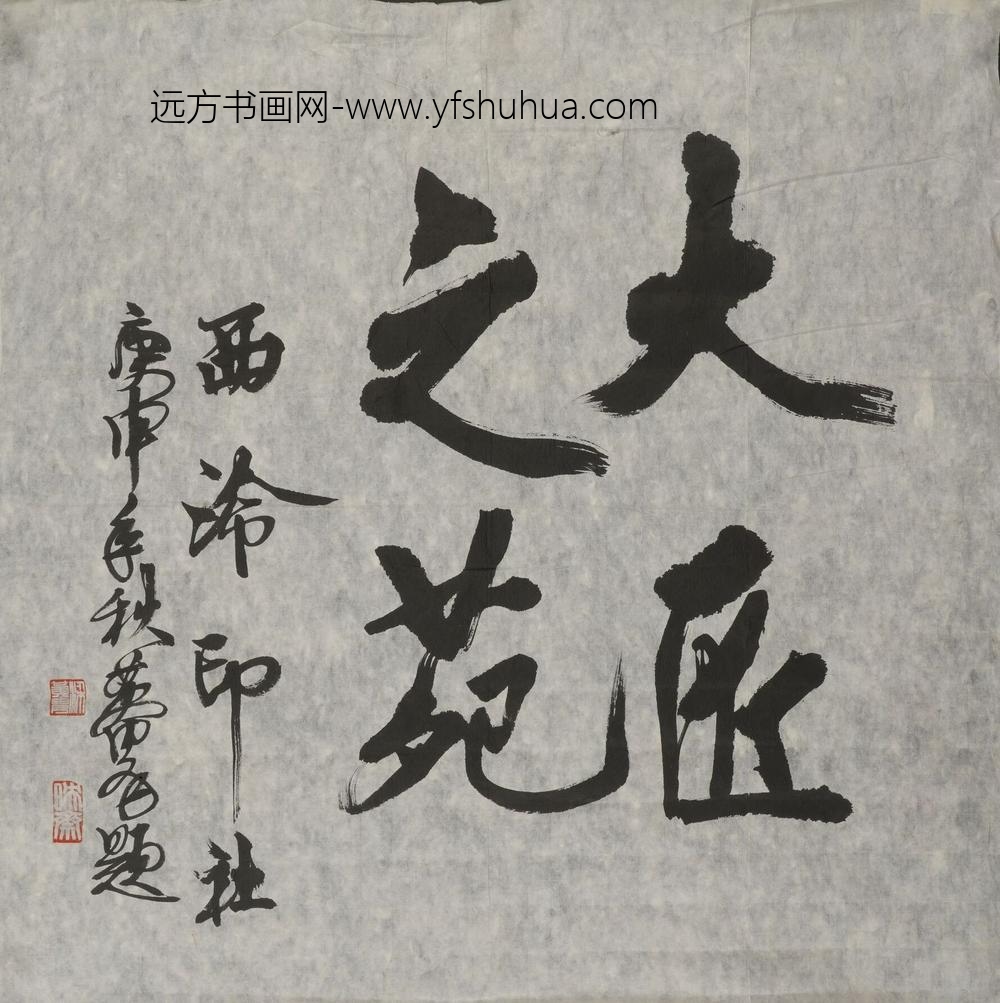 远方书画网-www.yfshuhua.com
大匠
之苑
西泠印社
庚申年秋 题